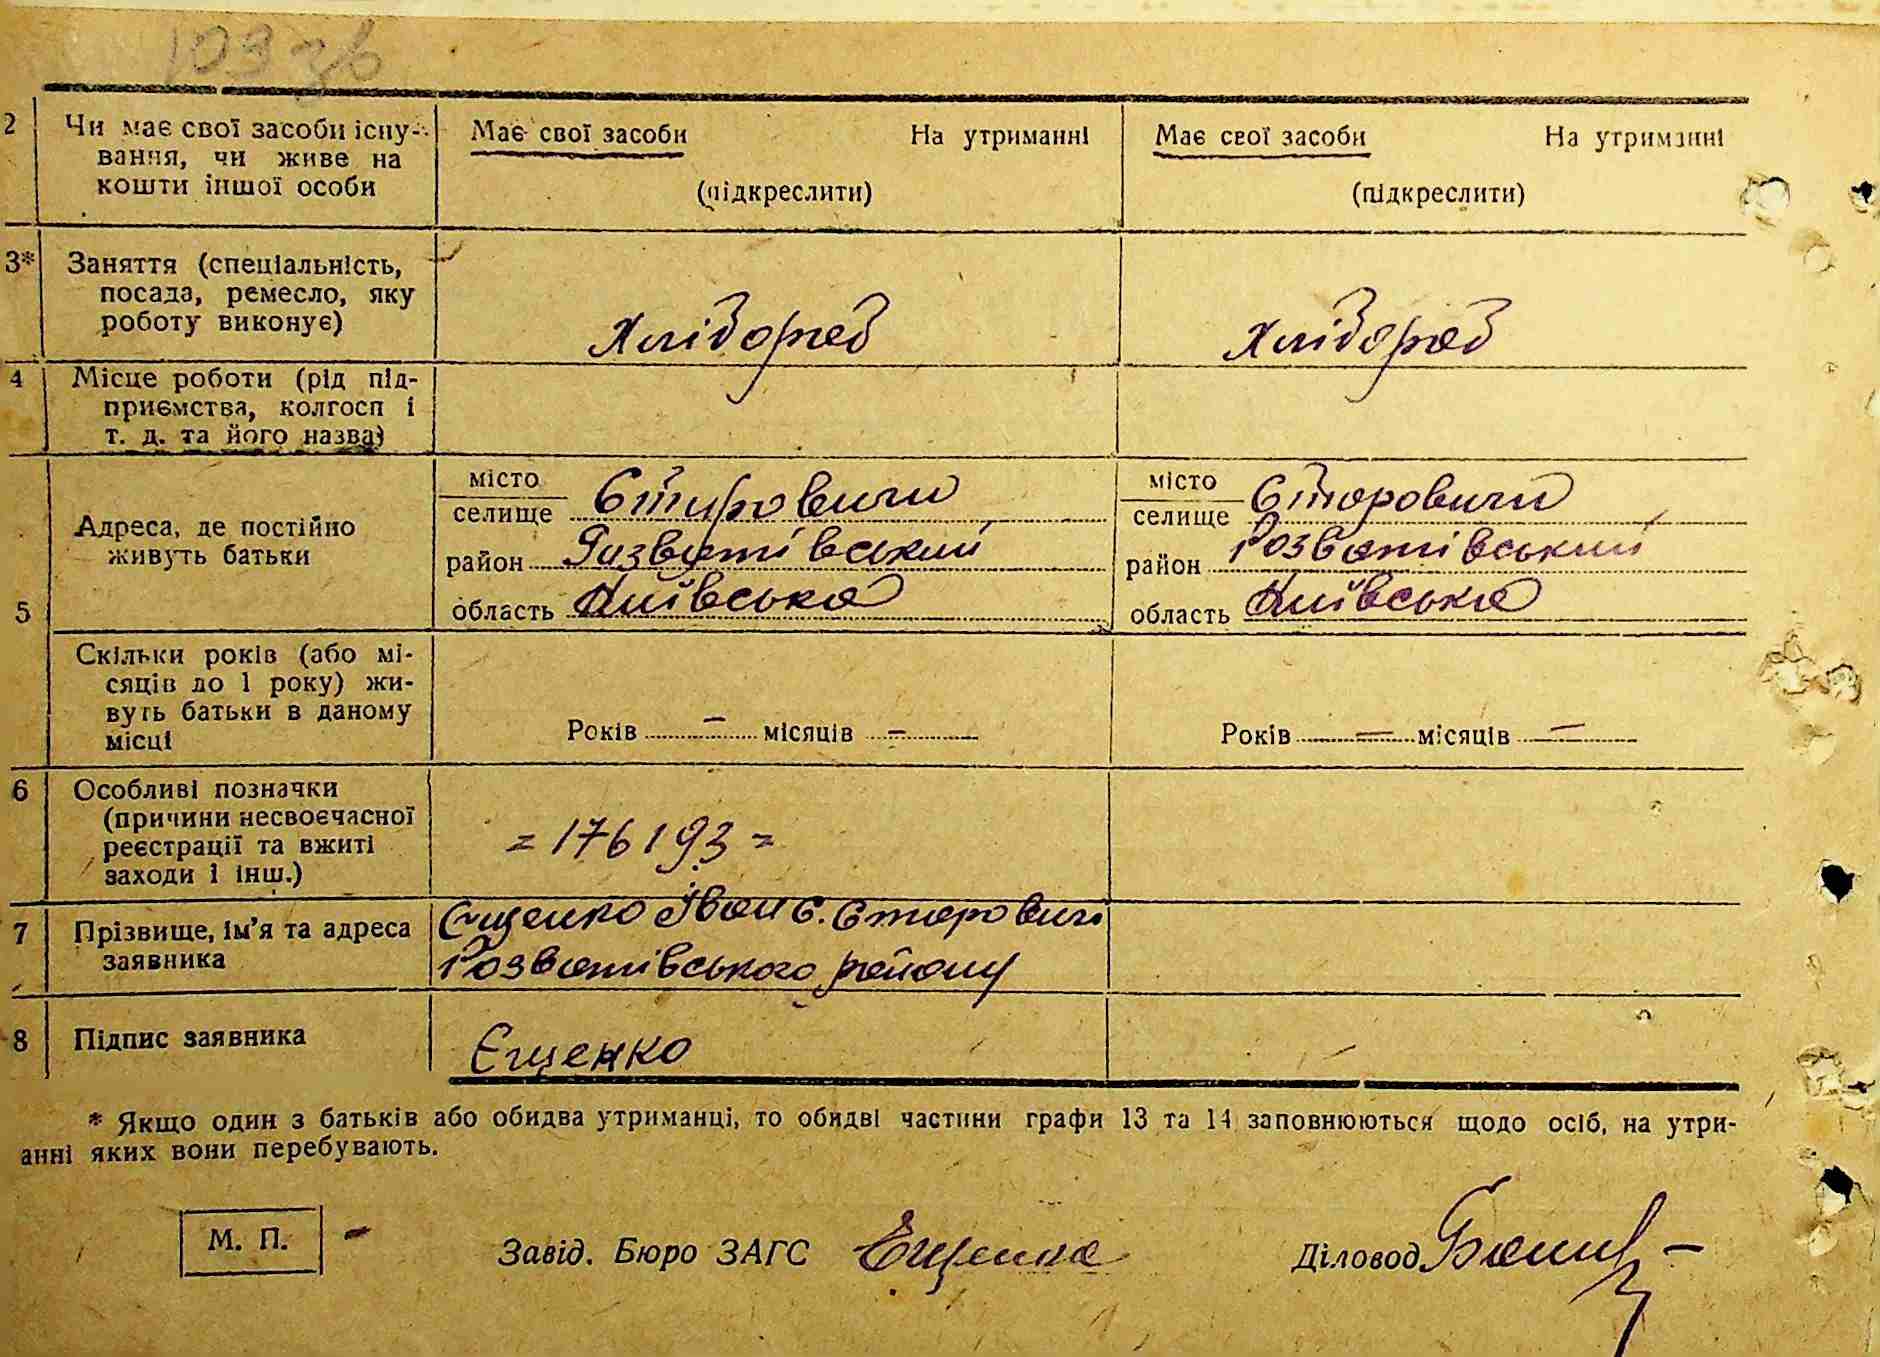 103 зв
2 Чи має свої засоби існу- Має свої засоби На утриманні Має свої засоби На утриманні
вання, чи живе на
кошти іншої особи (підкреслити) (підкреслити)
3* Заняття (спеціальність,
посада, ремесло, яку
роботу виконує) Хлібороб Хлібороб
4 Місце роботи (рід під-
приємства, колгосп і
т. д. та його назва)
місто місто
селище Старовичи селище Старовичи
5 Адреса, де постійно
живуть батьки
район Розважівський район Розважівський
область Київська область Київська
Скільки років (або мі-
сяців до 1 року) жи-
вуть батьки в даному
місці
Років – місяців – Років – місяців –
6 Особливі позначки
(причини несвоєчасної
реєстрації та вжиті
заходи і інш.)
= 176193 =
7 Прізвище, ім’я та адреса
заявника
Єщенко Іван с. Старовичі
Розважівського району
8 Підпис заявника Єщенко
* Якщо один з батьків або обидва утриманці, то обидві частини графи 13 та 14 заповнюються щодо осіб, на утри-
анні яких вони перебувають.
М. П. – Завід. Бюро ЗАГС Ещенко Діловод